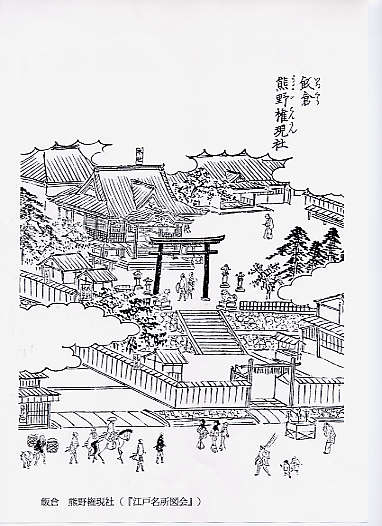 飯倉
熊野権現社
飯倉 熊野権現社(『江戸名所図会』)